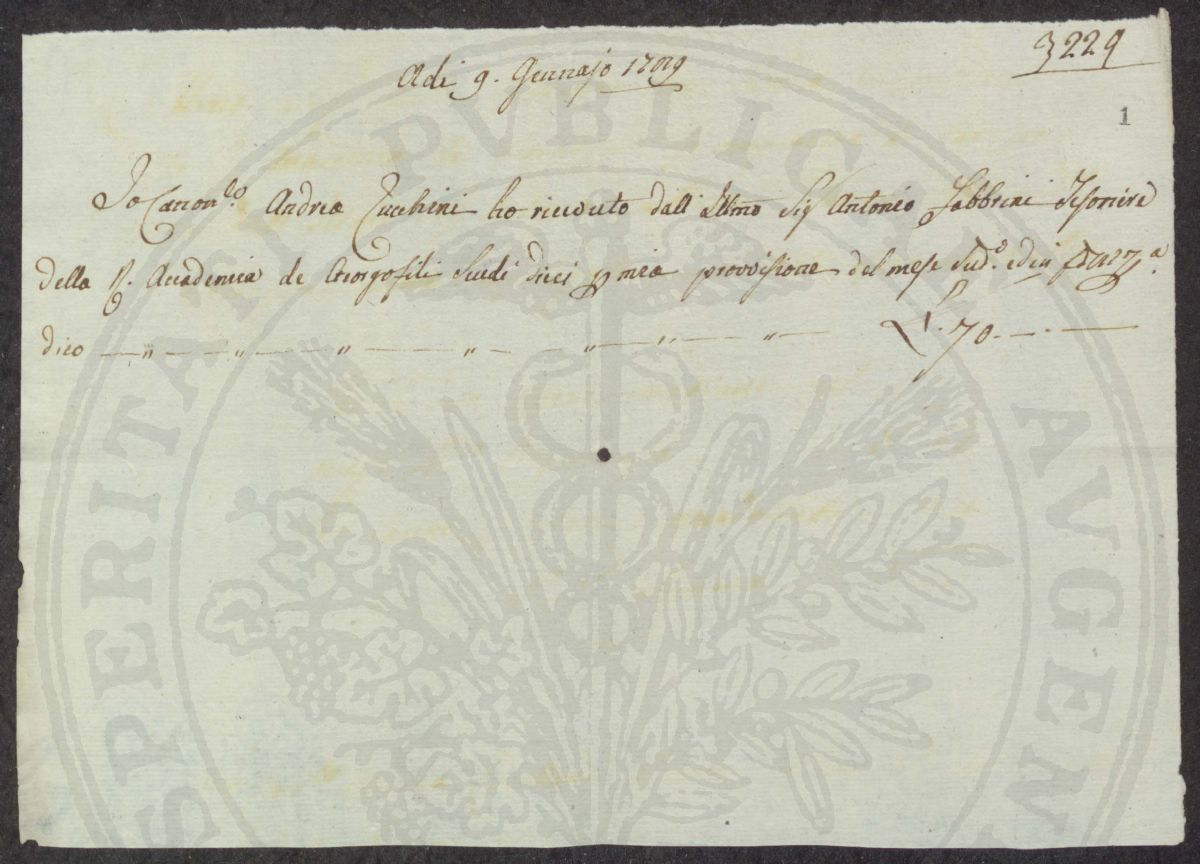 3229
Adi 9. Gennajo 1789
1
Io Canon.co Andrea Zucchini ho ricevuto dall Illmo Sig Antonio Fabbrini Tesoriere
della R. Accademia de Georgofili Scudi dieci p mea provvisione del mese Sud.o ed in
dico — „ — „ — „ — „ — „ — „ — „ — L. 70. — . —
PROSPERITATI PVBLICAE AVGEN